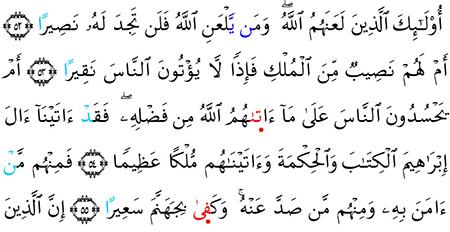 أُوْلَـٰٓئِكَ ٱلَّذِينَ لَعَنَهُمُ ٱللَّهُۖ وَمَن يَلْعَنِ ٱللَّهُ فَلَن تَجِدَ لَهُۥ نَصِيرًا ٥٢
أَمْ لَهُمْ نَصِيبٌ مِّنَ ٱلْمُلْكِ فَإِذًا لَّا يُؤْتُونَ ٱلنَّاسَ نَقِيرًا ٥٣ أَمْ
يَحْسُدُونَ ٱلنَّاسَ عَلَىٰ مَآ ءَاتَىٰهُمُ ٱللَّهُ مِن فَضْلِهِۦۖ فَقَدْ ءَاتَيْنَآ ءَالَ
إِبْرَٰهِيمَ ٱلْكِتَـٰبَ وَٱلْحِكْمَةَ وَءَاتَيْنَـٰهُم مُّلْكًا عَظِيمًا ٥٤ فَمِنْهُم مَّنْ
ءَامَنَ بِهِۦ وَمِنْهُم مَّن صَدَّ عَنْهُۚ وَكَفَىٰ بِجَهَنَّمَ سَعِيرًا ٥٥ إِنَّ ٱلَّذِينَ